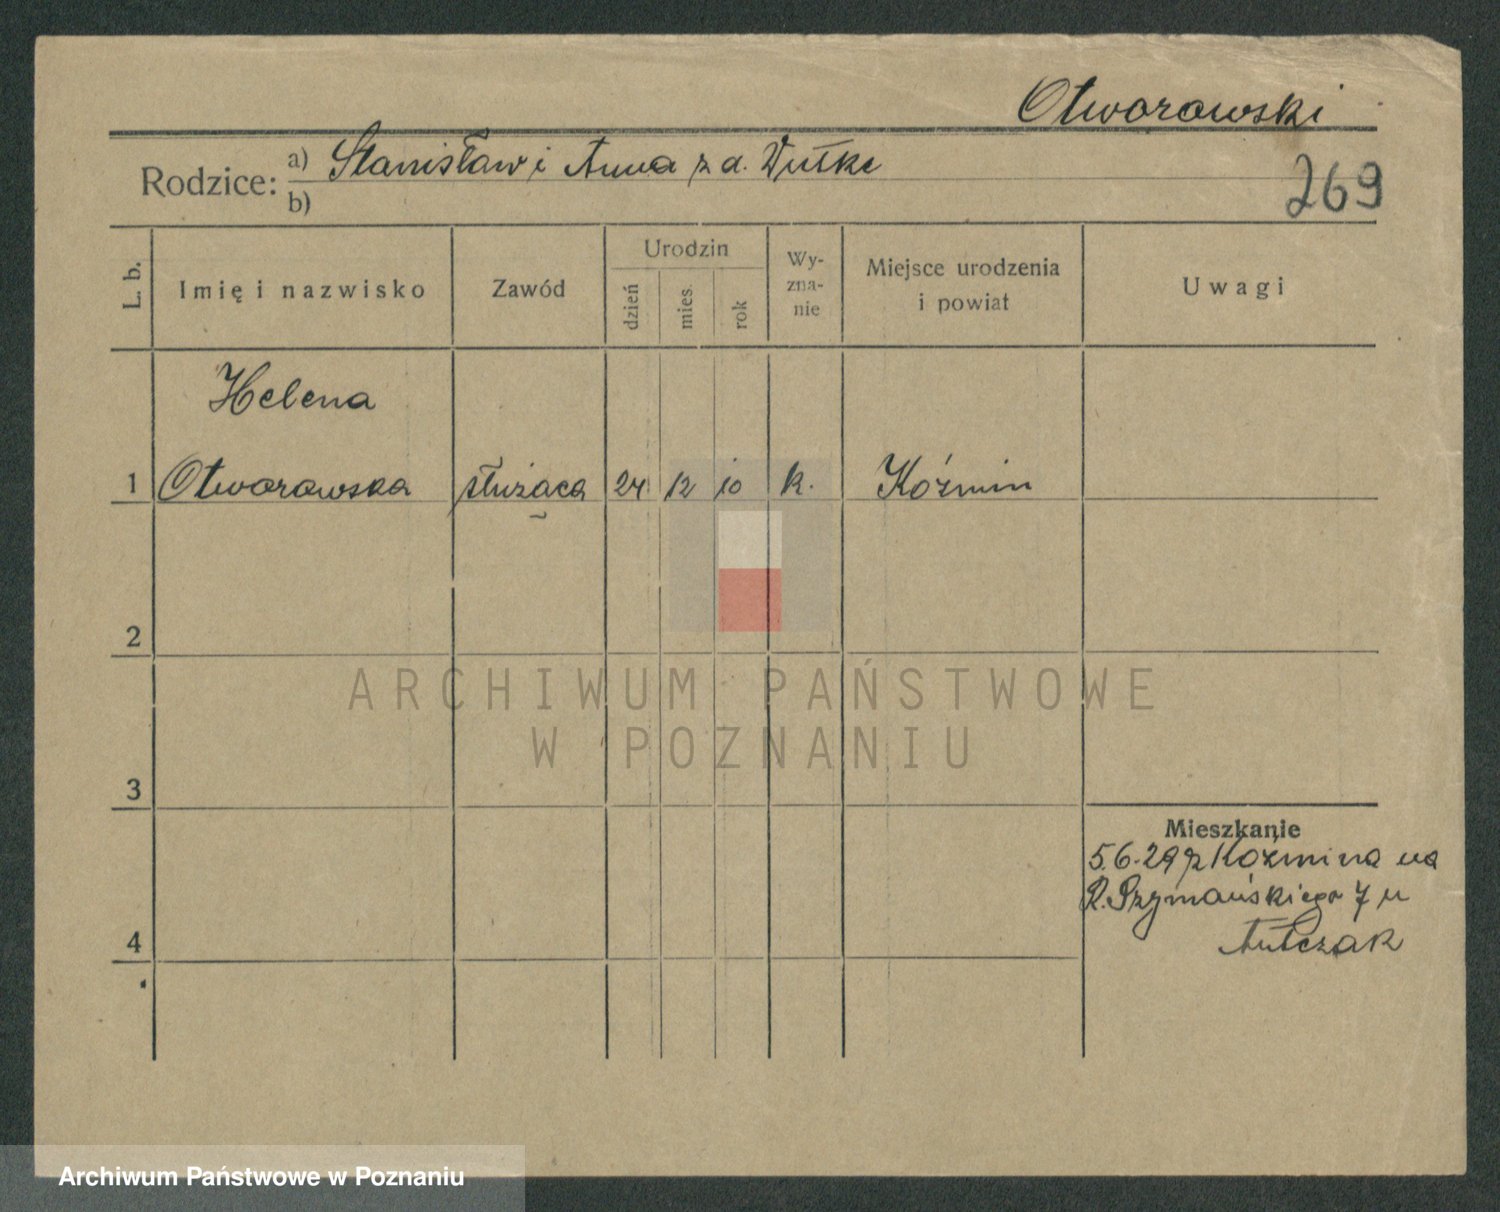 Otworowski
Rodzice: a) Stanisław i Anna z d. Wutke
b)
269
L. b.
Imię i nazwisko
Zawód
Urodzin
dzień
mies.
rok
Wy-
zna-
nie
Miejsce urodzenia
i powiat
Uwagi
Helena
1 Otworowska służąca 24 12 10 k. Koźmin
2
ARCHIWUM PAŃSTWOWE
W POZNANIU
3
Mieszkanie
5.6.29 z Koźmina na
R. Szymańskiego 7 u
Antczak
4
Archiwum Państwowe w Poznaniu